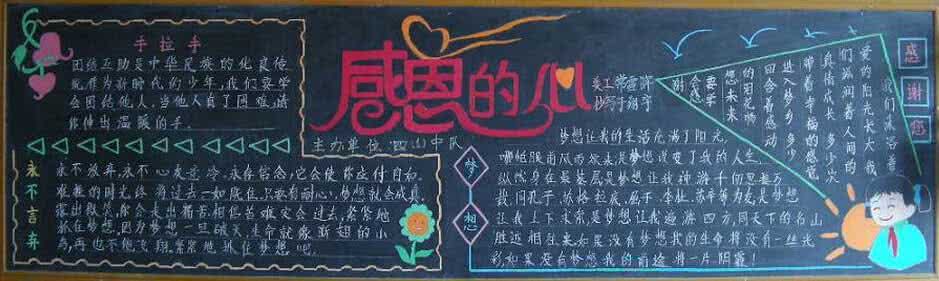 手拉手
团结互助是中华民族的优良传
统,作为新时代的少年,我们要学
会团结他人,当他人有了困难,请
你伸出温暖的手.
感恩的心
美工:常
抄写:于
主办单位:四(4)中队
永不言弃
永不放弃,永不心灰意冷,永存信念,它会使你应付自如.
难捱的时光终将过去一如既往.只要有耐心,梦想就会成真.
露出微笑,你会走出痛苦.相信苦难定会过去,紧紧地
抓住梦想,因为梦想一旦破灭,生命就像断翅的小
鸟,再也不能飞翔.紧紧地抓住梦想吧.
梦想
梦想让我的生活充满了阳光,
哪怕股雨风雨欲来是梦想改变了我的人生.
纵然身在最基层是梦想让我神游千何思接万
载.同孔子,苏格拉底,屈子,李杜,苏辛等为友是梦想
让我上下求索,是梦想让我遍游四方,同天下的名山
胜迹相往来如果没有梦想我的生命将没有一丝光
彩,如果没有梦想我的前途将一片阴霾!
感谢您
我们沐浴着
爱的阳光长大我
们滋润着人间的
真情成长多少次
带着幸福的感觉
进入梦乡多少
回含着感动
的泪花畅
想未来
要学
会感
谢